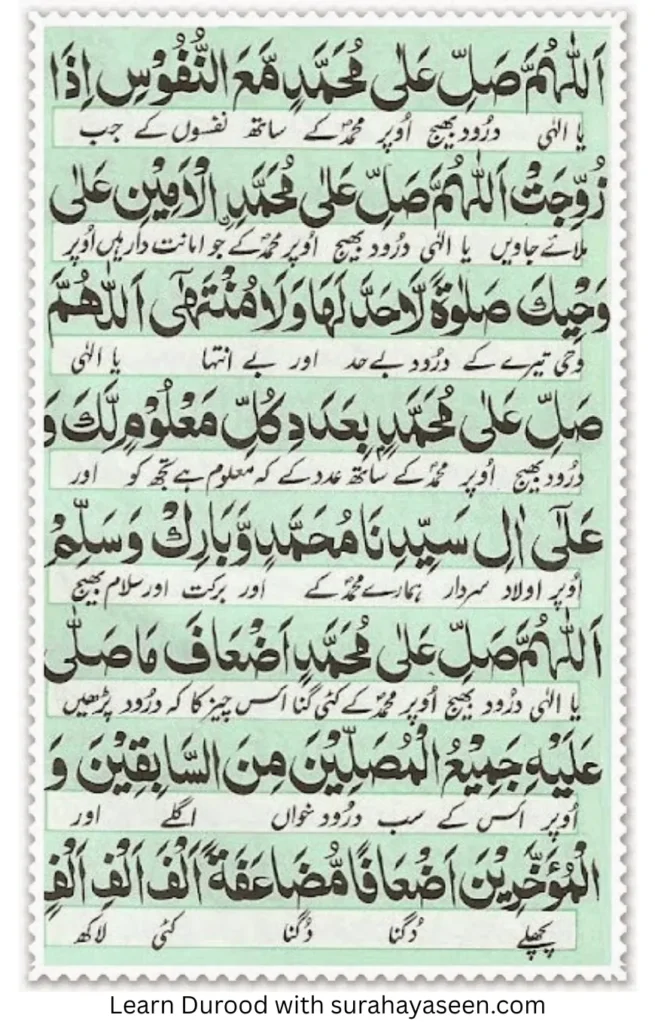 اَللّٰهُمَّ صَلِّ عَلٰى مُحَمَّدٍ مَّعَ النُّفُوْسِ اِذَا
یا الٰہی درُود بھیج اُوپر محمدؐ کے ساتھ نفسوں کے جب
زُوِّجَتْ اَللّٰهُمَّ صَلِّ عَلٰى مُحَمَّدِ ِۨالْاَمِيْنِ عَلٰى
ملائے جاویں یا الٰہی درُود بھیج اُوپر محمدؐ کے جو امانت دار ہیں اُوپر
وَحْيِكَ صَلٰوةً لَّاحَدَّ لَهَا وَلَا مُنْتَهٰٓى اَللّٰهُمَّ
وحی تیرے کے درُود بے حد اور بے انتہا یا الٰہی
صَلِّ عَلٰى مُحَمَّدٍۢ بِعَدَدِ كُلِّ مَعْلُوْمٍ لَّكَ وَ
درُود بھیج اُوپر محمدؐ کے ساتھ عدد کے کہ معلوم ہے تجھ کو اور
عَلٰٓى اٰلِ سَيِّدِنَا مُحَمَّدٍ وَّبَارِكْ وَسَلِّمْ
اُوپر اولاد سردار ہمارے محمدؐ کے اور برکت اور سلام بھیج
اَللّٰهُمَّ صَلِّ عَلٰى مُحَمَّدٍ اَضْعَافَ مَا صَلّٰى
یا الٰہی درُود بھیج اُوپر محمدؐ کے کئی گنا اُس چیز کا کہ درُود پڑھیں
عَلَيْهِ جَمِيْعُ الْمُصَلِّيْنَ مِنَ السَّابِقِيْنَ وَ
اُوپر اُس کے سب درُود خواں اگلے اور
الْمُؤَخَّرِيْنَ اَضْعَافًا مُّضَاعَفَةً اَلْفَ اَلْفِ اَلْفِ
پچھلے دُگنا دُگنا کئی لاکھ
Learn Durood with surahayaseen.com